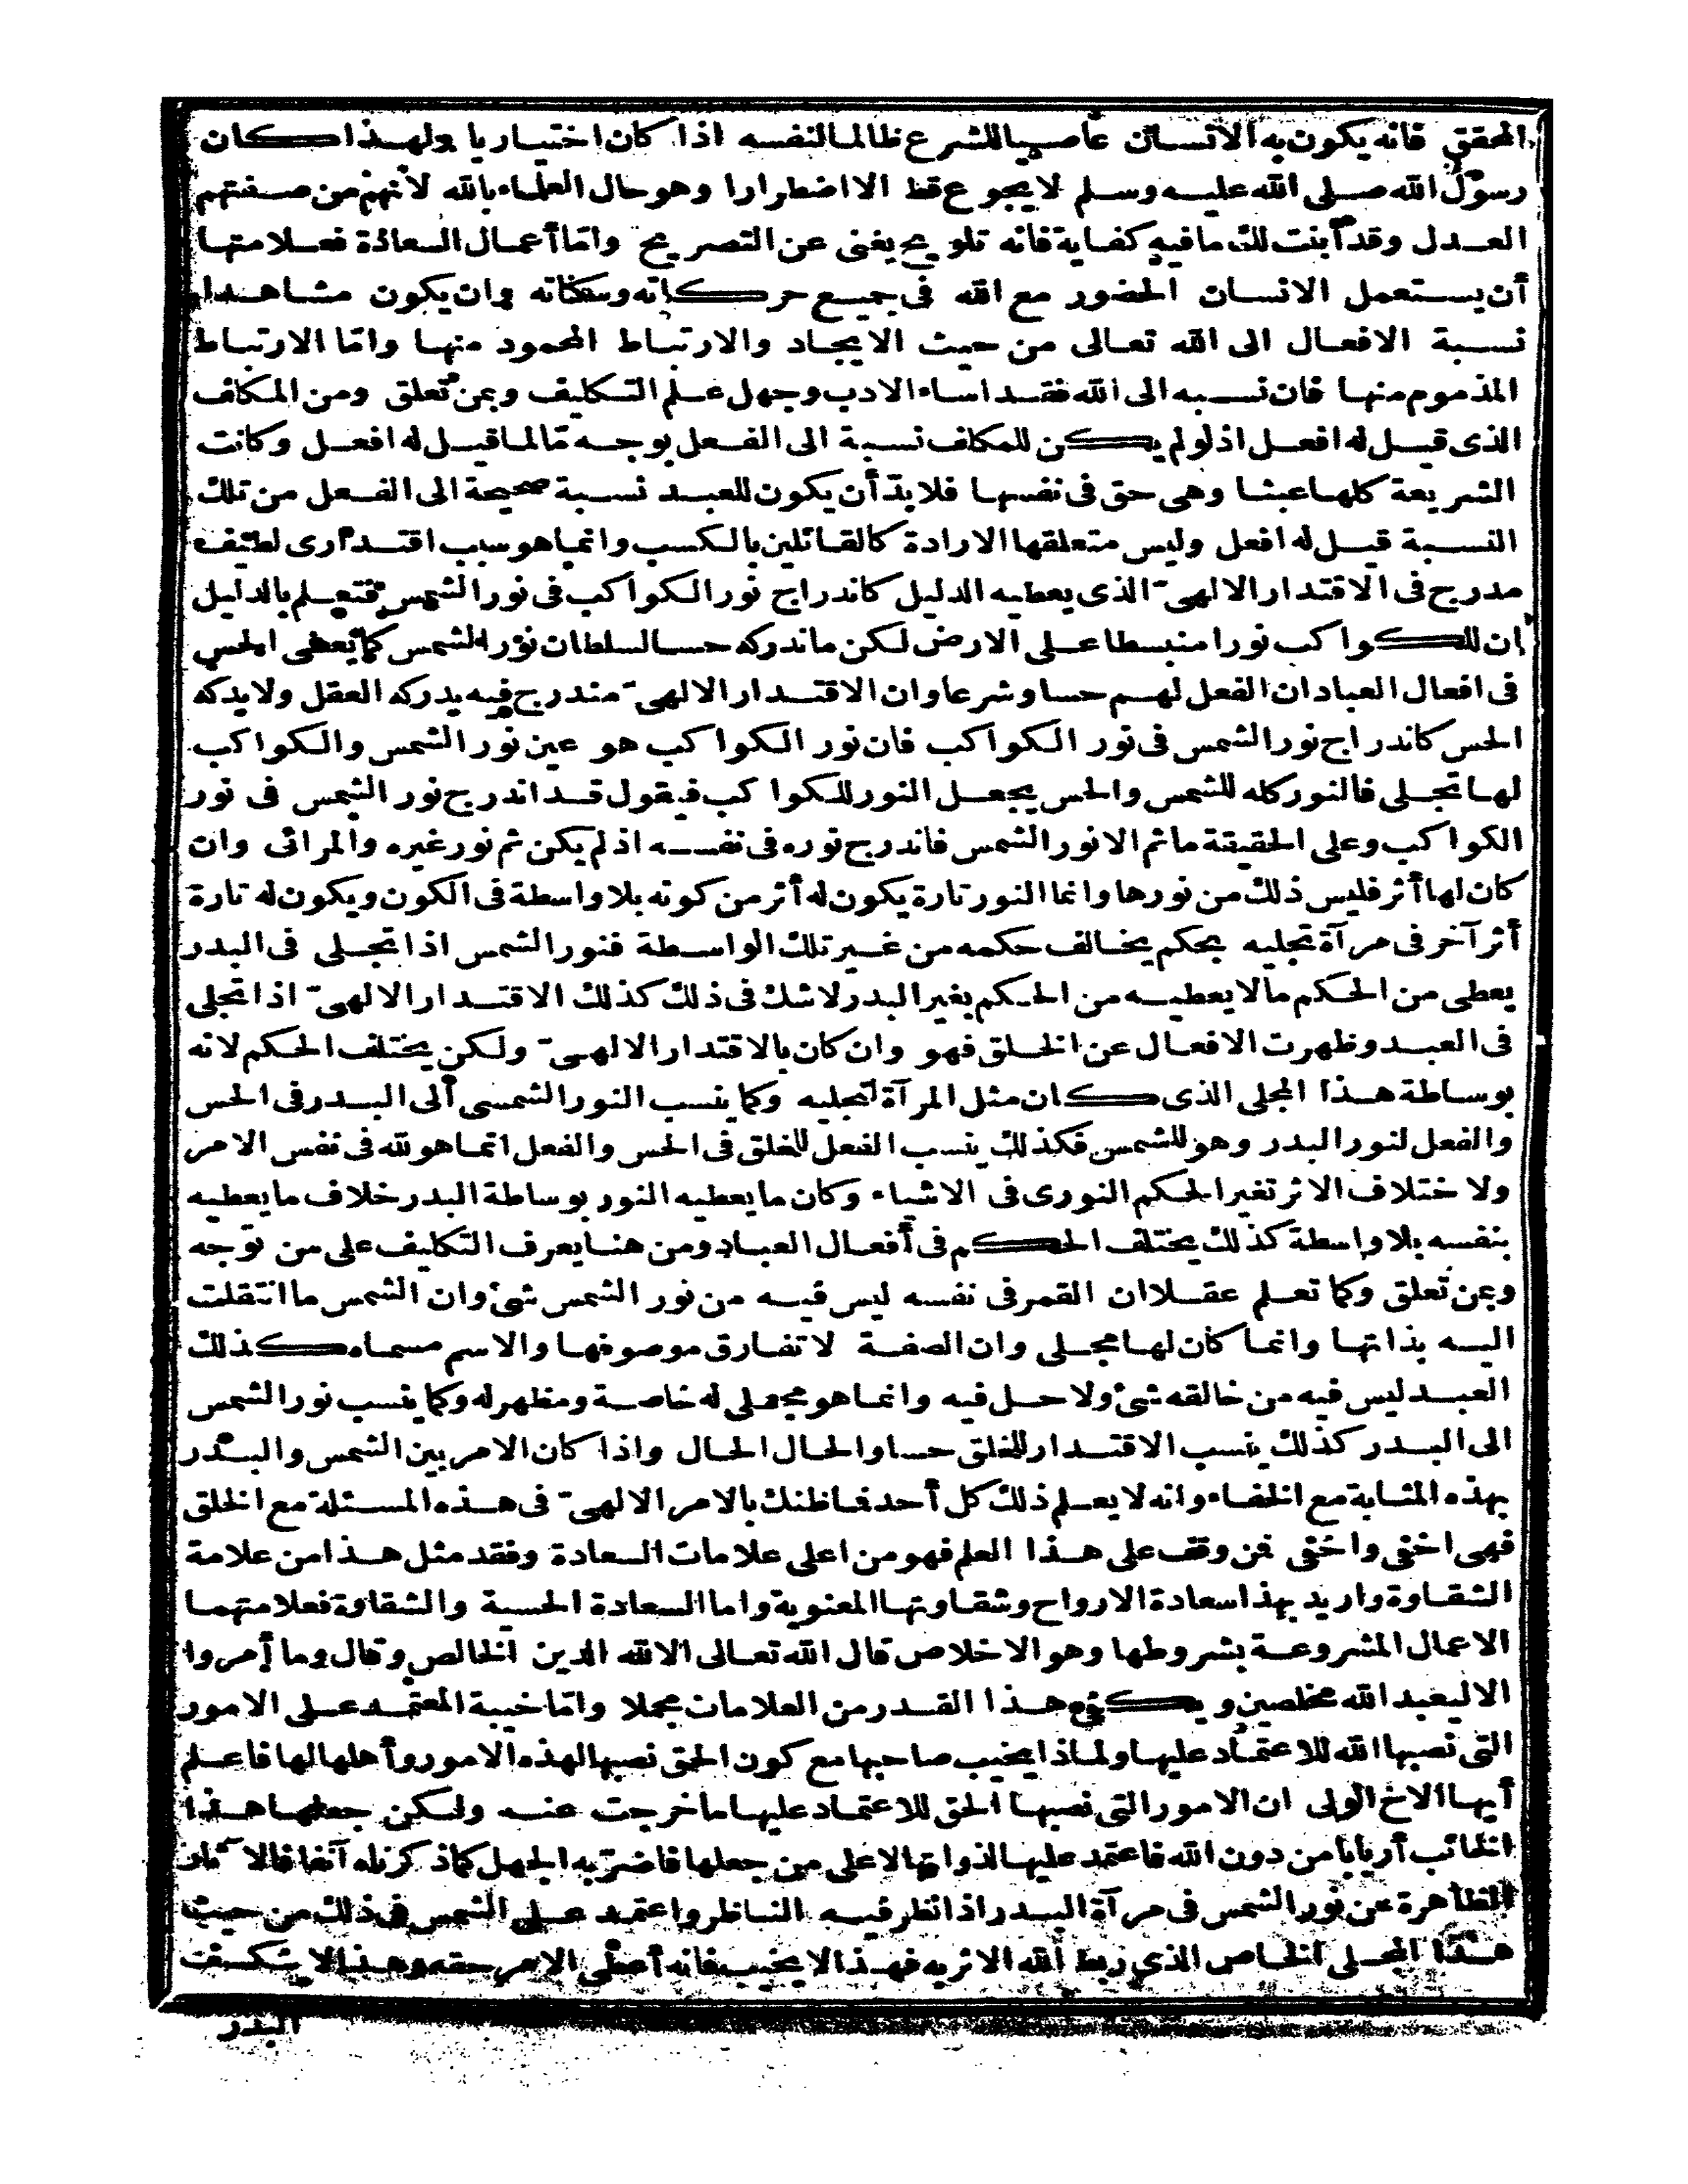 المحقق فانه يكون به الانسان عاصيا للشرع ظالما لنفسه اذا كان اختياريا ولهذا كان
رسول الله صلى الله عليه وسلم لا يجوع قط الا اضطرارا وهو حال العلماء بالله لانهم من صفتهم
العدل وقد أبنت لك ما فيه كفاية فانه تلويح يغنى عن التصريح وامّا أعمال السعادة فعلامتها
أن يستعمل الانسان الحضور مع الله فى جميع حركاته وسكناته وان يكون مشاهدا
نسبة الافعال الى الله تعالى من حيث الايجاد والارتباط المحمود منها وامّا الارتباط
المذموم منها فان نسبه الى الله فقد اساء الادب وجهل علم التكليف وبمن تعلق ومن المكلف
الذى قيل له افعل اذ لو لم يكن للمكلف نسبة الى الفعل بوجه مّا لما قيل له افعل وكانت
الشريعة كلها عبثا وهى حق فى نفسها فلا بدّ أن يكون للعبد نسبة صحيحة الى الفعل من تلك
النسبة قيل له افعل وليس متعلقها الارادة كالقائلين بالكسب وانما هو سبب اقتدارى لطيف
مدرج فى الاقتدار الالهىّ الذى يعطيه الدليل كاندراج نور الكواكب فى نور الشمس فتعلم بالدليل
ان للكواكب نورا منبسطا على الارض لكن ما ندركه حسا لسلطان نور الشمس كما يعطى الحس
فى افعال العباد ان الفعل لهم حسا وشرعا وان الاقتدار الالهىّ مندرج فيه يدركه العقل ولا يدركه
الحس كاندراج نور الشمس فى نور الكواكب فان نور الكواكب هو عين نور الشمس والكواكب
لها تجلى فالنور كله للشمس والحس يجعل النور للكواكب فيقول قد اندرج نور الشمس فى نور
الكواكب وعلى الحقيقة ما ثم الا نور الشمس فاندرج نوره فى نفسه اذ لم يكن ثم نور غيره والمرائى وان
كان لها أثر فليس ذلك من نورها وانما النور تارة يكون له أثر من كونه بلا واسطة فى الكون ويكون له تارة
أثر آخر فى مرآة تجليه بحكم يخالف حكمه من غير تلك الواسطة فنور الشمس اذا تجلى فى البدر
يعطى من الحكم مالا يعطيه من الحكم بغير البدر لا شك فى ذلك كذلك الاقتدار الالهىّ اذا تجلى
فى العبد وظهرت الافعال عن الخلق فهو وان كان بالاقتدار الالهىّ ولكن يختلف الحكم لانه
بوساطة هذا المجلى الذى كان مثل المرآة لتجليه وكما ينسب النور الشمسى ألى البدر فى الحس
والفعل لنور البدر وهو للشمس فكذلك ينسب الفعل للخلق فى الحس والفعل انما هو لله فى نفس الامر
ولاختلاف الاثر تغير الحكم النورى فى الاشياء وكان ما يعطيه النور بوساطة البدر خلاف ما يعطيه
بنفسه بلا واسطة كذلك يختلف الحكم فى أفعال العباد ومن هنا يعرف التكليف على من توجه
وبمن تعلق وكما تعلم عقلا ان القمر فى نفسه ليس فيه من نور الشمس شئ وان الشمس ما انتقلت
اليه بذاتها وانما كان لها مجلى وان الصفة لا تفارق موصوفها والاسم مسماه كذلك
العبد ليس فيه من خالقه شئ ولا حل فيه وانما هو مجلى له خاصة ومظهر له وكما ينسب نور الشمس
الى البدر كذلك ينسب الاقتدار للخلق حسا والحال الحال واذا كان الامر بين الشمس والبدر
بهذه المثابة مع الخفاء وانه لا يعلم ذلك كل أحد فما ظنك بالامر الالهىّ فى هذه المسئلة مع الخلق
فهى اخفى واخفى فمن وقف على هذا العلم فهو من اعلى علامات السعادة وفقد مثل هذا من علامة
الشقاوة واريد بهذا سعادة الارواح وشقاوتها المعنوية واما السعادة الحسية والشقاوة فعلامتهما
الاعمال المشروعة بشروطها وهو الاخلاص قال الله تعالى الا لله الدين الخالص وقال وما أمروا
الا ليعبدوا الله مخلصين ويكفى هذا القدر من العلامات مجملا وامّا خيبة المعتمد على الامور
التى نصبها الله للاعتماد عليها ولماذا يخيب صاحبها مع كون الحق نصبها لهذه الامور وأهلها لها فاعلم
أيها الاخ الولى ان الامور التى نصبها الحق للاعتماد عليها ما خرجت عنه ولكن جعلها هذا
الخائب أربابا من دون الله فاعتمد عليها لذواتها لا على من جعلها فاضرّ به الجهل كما ذكرناه آنفا فالآثار
الظاهرة عن نور الشمس فى مرآة البدر اذا نظر فيه الناظر واعتمد على الشمس فى ذلك من حيث
هذا المجلى الخاص الذى ربط الله الاثر به فهذا لا يخيب فانه أعطى الامر حقه وهذا لا ينكسف
البدر